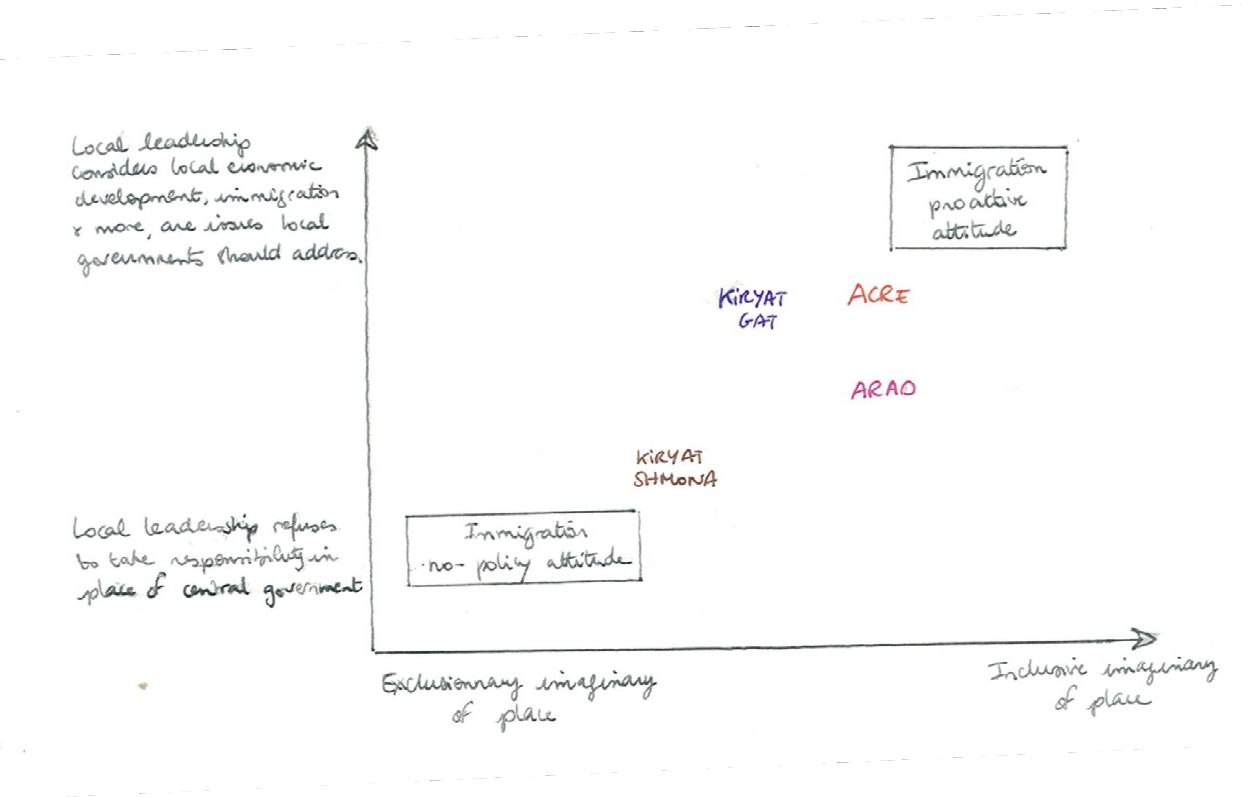 Local leadership
considers local economic
development, immigration
& more, are issues local
governments should address.
Immigration
proactive
attitude
KIRYAT
GAT
ACRE
ARAD
KIRYAT
SHMONA
Local leadership refuses
to take responsibility in
place of central government
Immigration
no- policy attitude
Exclusionnary imaginary
of place
Inclusive imaginary
of place